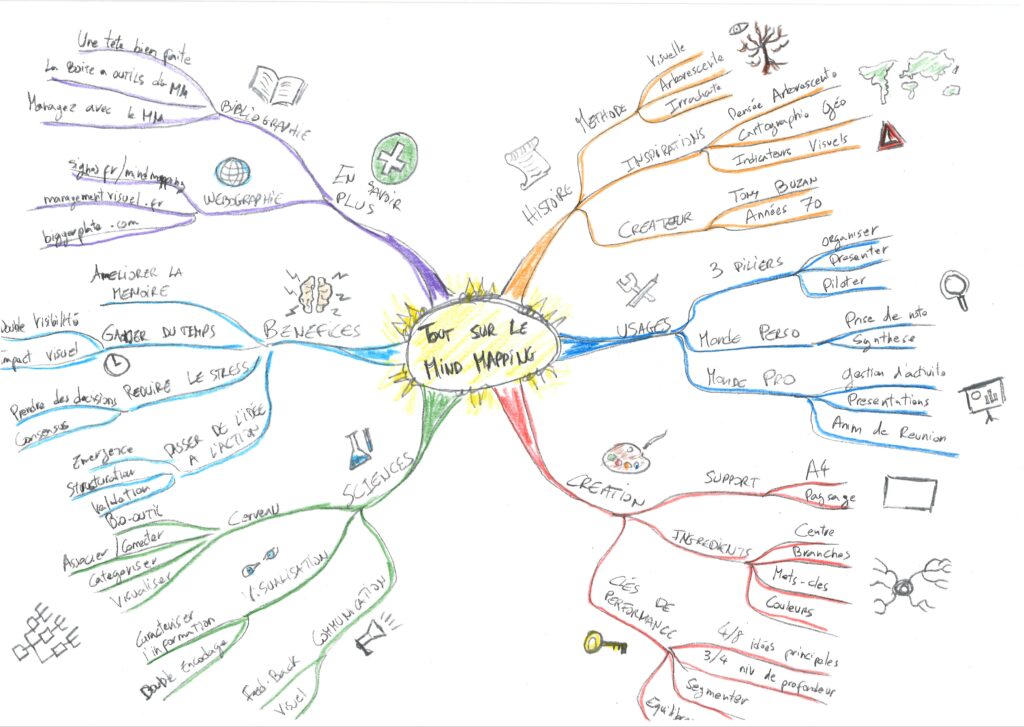 TOUT SUR LE
MIND MAPPING
HISTOIRE
METHODE
Visuelle
Arborescente
Irradiante
INSPIRATIONS
Pensée Arborescente
Cartographie Géo
Indicateurs Visuels
CREATEUR
Tony BUZAN
Années 70
USAGES
3 PILIERS
Organiser
Presenter
Piloter
MONDE PERSO
Prise de note
Synthèse
MONDE PRO
Gestion d'activité
Presentations
Anim de Reunion
CREATION
SUPPORT
A4
Paysage
INGREDIENTS
Centre
Branches
Mots-clés
Couleurs
CLÉS DE
PERFORMANCE
4/8 idées principales
3/4 niv de profondeur
Segmenter
SCIENCES
Cerveau
Bio-outil
Associer / Connecter
Categoriser
Visualiser
VISUALISATION
Caractériser
l'information
Double Encodage
COMMUNICATION
Feed-Back
Visuel
BENEFICES
AMELIORER LA
MEMOIRE
GAGNER DU TEMPS
Double visibilité
impact visuel
REDUIRE LE STRESS
Prendre des decisions
Consensus
PASSER DE L'IDÉE
A L'ACTION
Emergence
Structuration
Validation
EN
SAVOIR
PLUS
BIBLIOGRAPHIE
Une tête bien faite
La Boite a outils du MM
Managez avec le MM
WEBOGRAPHIE
signos.fr/mindmapping
managementvisuel.fr
biggerplate.com